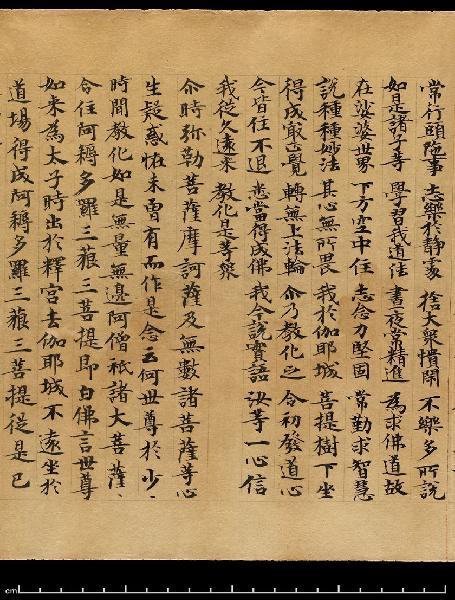 常行頭陁事　志樂於静處　捨大衆憒閙　不樂多所說
如是諸子等　學習我道法　晝夜常精進　為求佛道故
在娑婆世界　下方空中住　志念力堅固　常勤求智慧
說種種妙法　其心無所畏　我於伽耶城　菩提樹下坐
得成最正覺　轉無上法輪　尒乃教化之　令初發道心
今皆住不退　悉當得成佛　我今說實語　汝等一心信
我從久遠來　教化是等衆
尒時弥勒菩薩摩訶薩及無數諸菩薩等心
生疑惑恠未曾有而作是念云何世尊於少
時間教化如是無量無邊阿僧祇諸大菩薩
令住阿耨多羅三藐三菩提即白佛言世尊
如来為太子時出於釋宮去伽耶城不遠坐於
道場得成阿耨多羅三藐三菩提從是已
cm